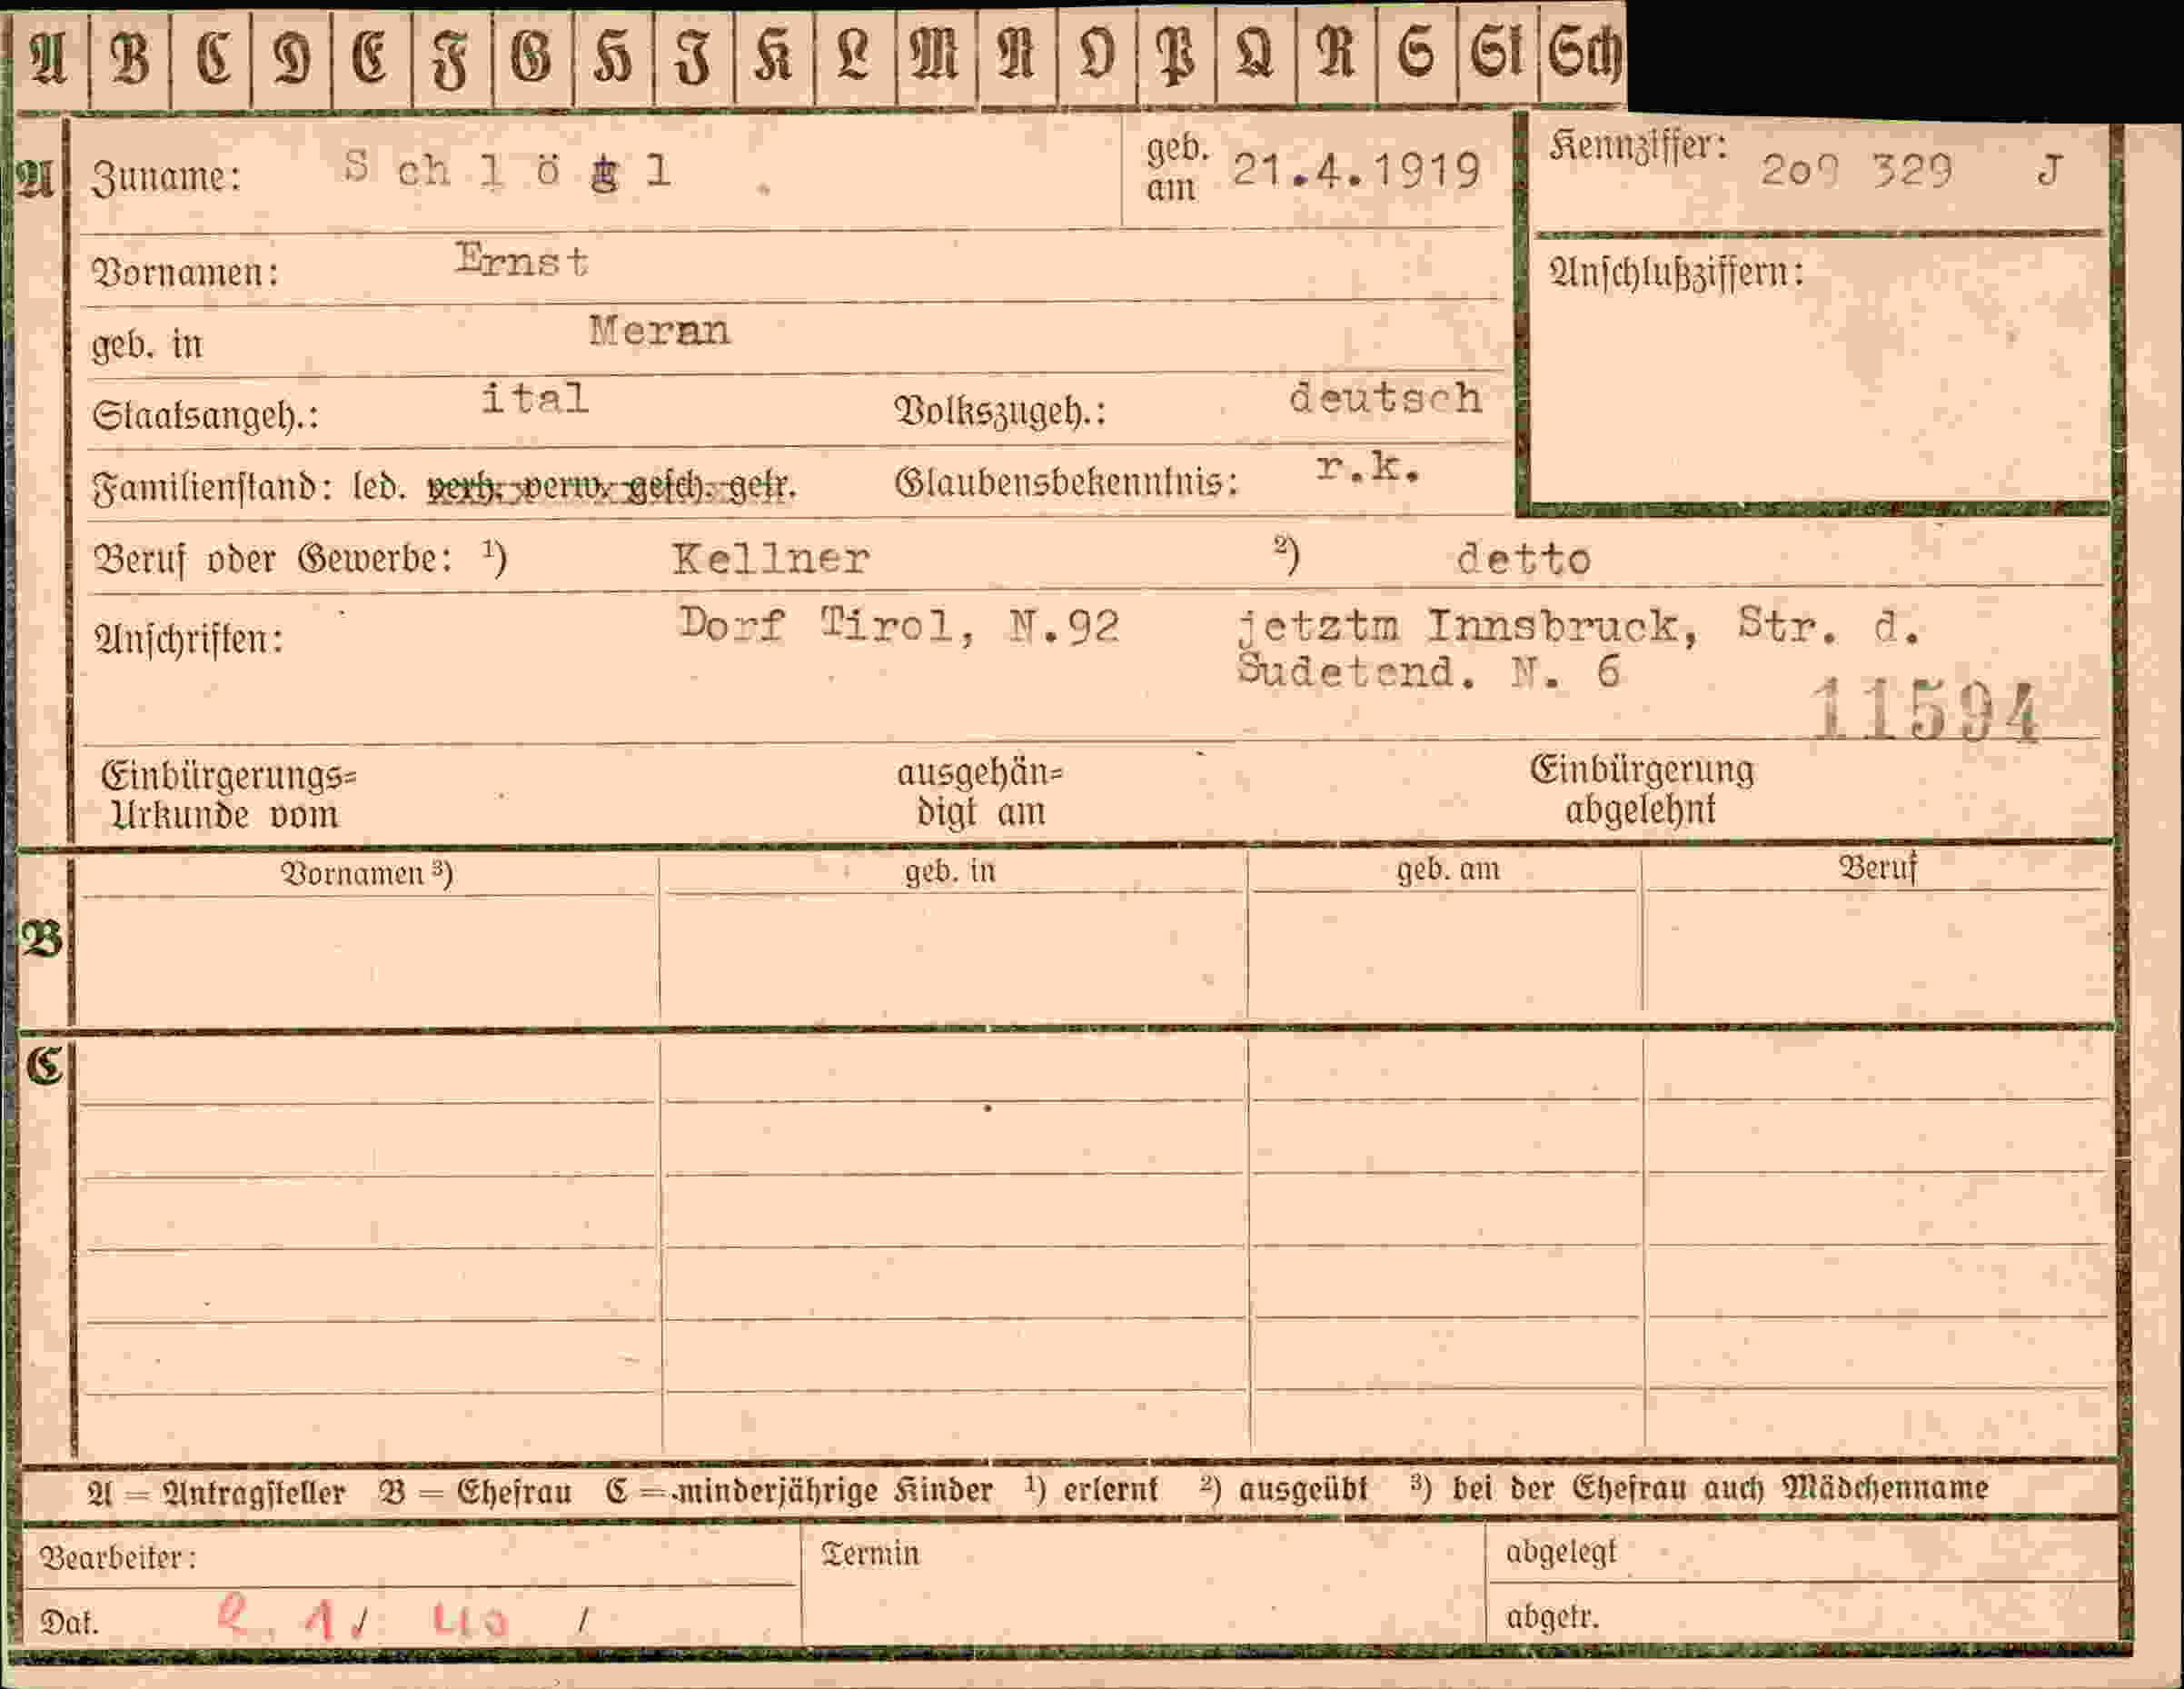 A B C D E F G H I K L M N O P Q R S St Sch
A Zuname: S ch l ö g l geb. am 21.4.1919 Kennziffer: 209 329 J
Vornamen: Ernst Anschlußziffern:
geb. in Meran
Staatsangeh.: ital Volkszugeh.: deutsch
Familienstand: led. verh. verw. gesch. getr. Glaubensbekenntnis: r.k.
Beruf oder Gewerbe: ¹) Kellner ²) detto
Anschriften: Dorf Tirol, N.92 jetztm Innsbruck, Str. d.
Sudetend. N. 6
11594
Einbürgerungs= ausgehän= Einbürgerung
Urkunde vom digt am abgelehnt
Vornamen ³) geb. in geb. am Beruf
B
C
A = Antragsteller B = Ehefrau C = minderjährige Kinder ¹) erlernt ²) ausgeübt ³) bei der Ehefrau auch Mädchenname
Bearbeiter: Termin abgelegt
Dat. 2. 1/ 40 / abgetr.